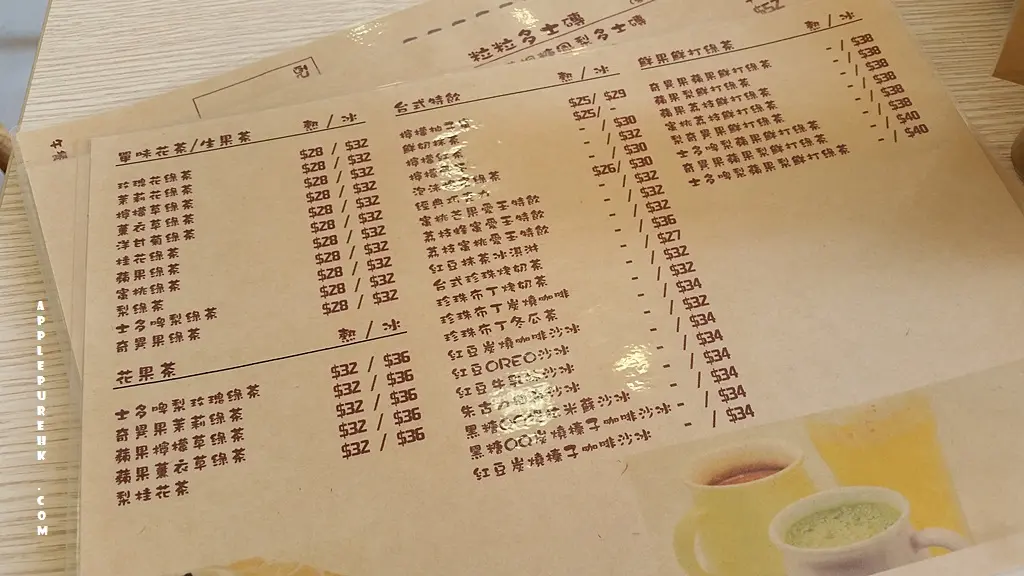 粒粒多士磚
$52
單味花茶/生果茶 熱 / 冰
玫瑰花綠茶 $28 / $32
茉莉花綠茶 $28 / $32
檸檬草綠茶 $28 / $32
薰衣草綠茶 $28 / $32
洋甘菊綠茶 $28 / $32
桂花綠茶 $28 / $32
蘋果綠茶 $28 / $32
蜜桃綠茶 $28 / $32
梨綠茶
士多啤梨綠茶
奇異果綠茶
花果茶 熱 / 冰
士多啤梨玫瑰綠茶 $32 / $36
奇異果茉莉綠茶 $32 / $36
蘋果檸檬草綠茶 $32 / $36
蘋果薰衣草綠茶 $32 / $36
梨桂花茶
台式特飲 熱 / 冰
檸檬 $25/ $29
鮮奶 $25/ $30
檸檬 - / $32
綠茶 - / $30
經典 $26/ $30
蜜桃芒果愛玉特飲 - / $32
荔枝蜂蜜愛玉特飲 - / $32
荔枝蜜桃愛玉特飲 - / $36
紅豆抹茶冰淇淋 - / $27
台式珍珠烤奶茶 - / $32
珍珠布丁烤奶茶 - / $34
珍珠布丁炭燒咖啡 - / $32
珍珠布丁冬瓜茶 - / $34
紅豆炭燒咖啡沙冰 - / $34
紅豆OREO沙冰 - / $34
紅豆牛乳沙冰 - / $34
朱古 沙冰 - / $34
黑糖 米蘇沙冰
黑糖 炭燒榛子咖啡沙冰
紅豆炭燒榛子咖啡沙冰
鮮果鮮打綠茶 熱 / 冰
奇異果蘋果鮮打綠茶 - / $38
蘋果梨鮮打綠茶 - / $38
蘋果荔枝鮮打綠茶 - / $38
蜜桃荔枝鮮打綠茶 - / $38
梨奇異果鮮打綠茶 - / $38
士多啤梨蘋果鮮打綠茶 - / $40
奇異果蘋果梨鮮打綠茶 - / $40
士多啤梨蘋果梨鮮打綠茶
APPLEPUREHK.COM